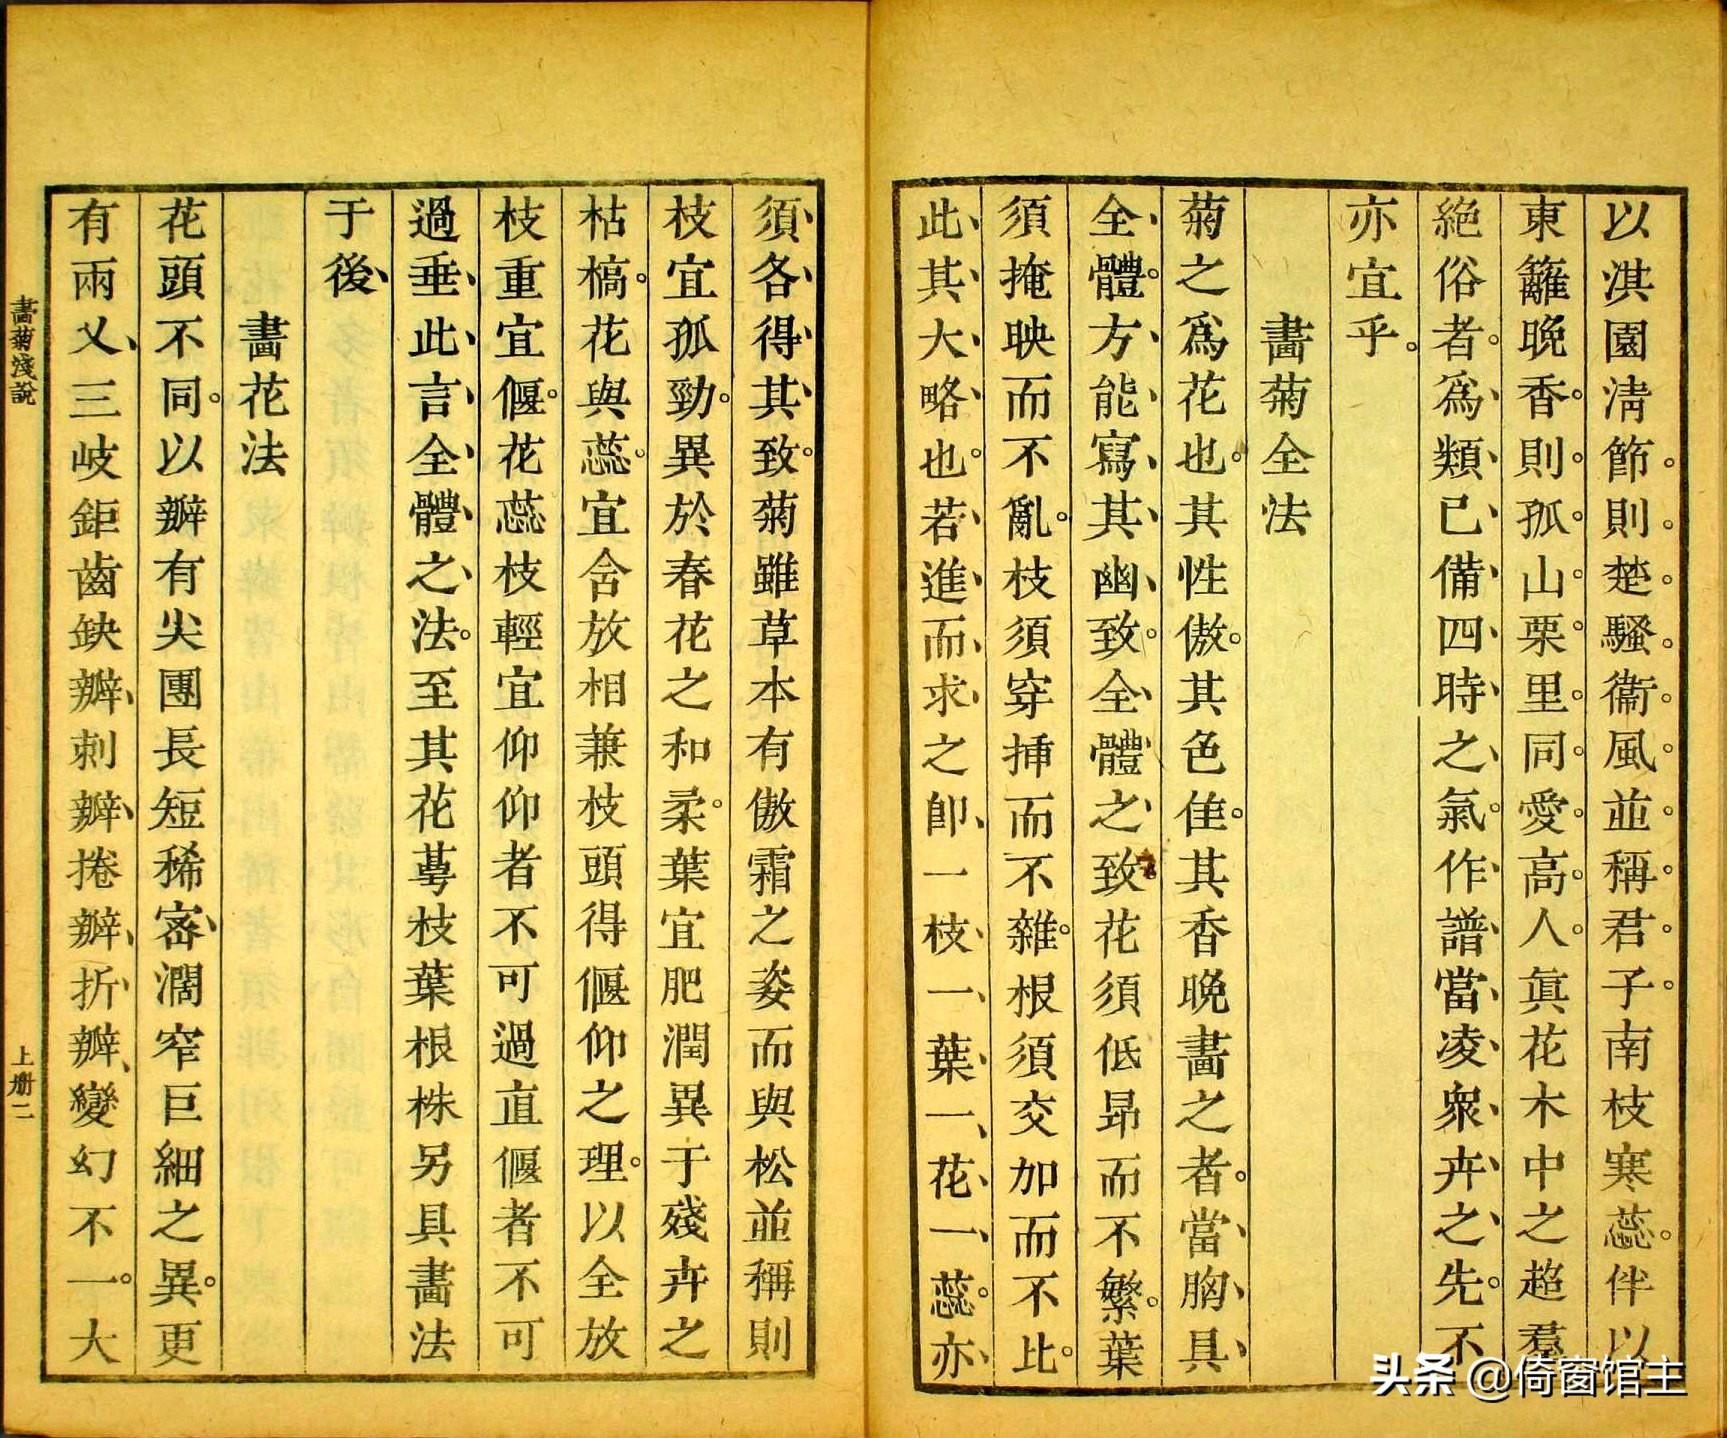 以淇園淸節則楚騷衞風並稱君子南枝寒蕊伴以
東籬晚香則孤山栗里同愛高人眞花木中之超羣
絕俗者爲類已備四時之氣作譜當凌衆卉之先不
亦宜乎
畫菊全法
菊之爲花也其性傲其色佳其香晚畫之者當胸具
全體方能寫其幽致全體之致花須低昻而不繁葉
須掩映而不亂枝須穿揷而不雜根須交加而不比
此其大略也若進而求之卽一枝一葉一花一蕊亦
須各得其致菊雖草本有傲霜之姿而與松並稱則
枝宜孤勁異於春花之和柔葉宜肥潤異于殘卉之
枯槁花與蕊宜含放相兼枝頭得偃仰之理以全放
枝重宜偃花蕊枝輕宜仰仰者不可過直偃者不可
過垂此言全體之法至其花蕚枝葉根株另具畫法
于後
畫花法
花頭不同以瓣有尖團長短稀密濶窄巨細之異更
有兩乂三岐鉅齒缺瓣刺瓣捲瓣折瓣變幻不一大
畫菊淺說
上册二
头条 @倚窗馆主